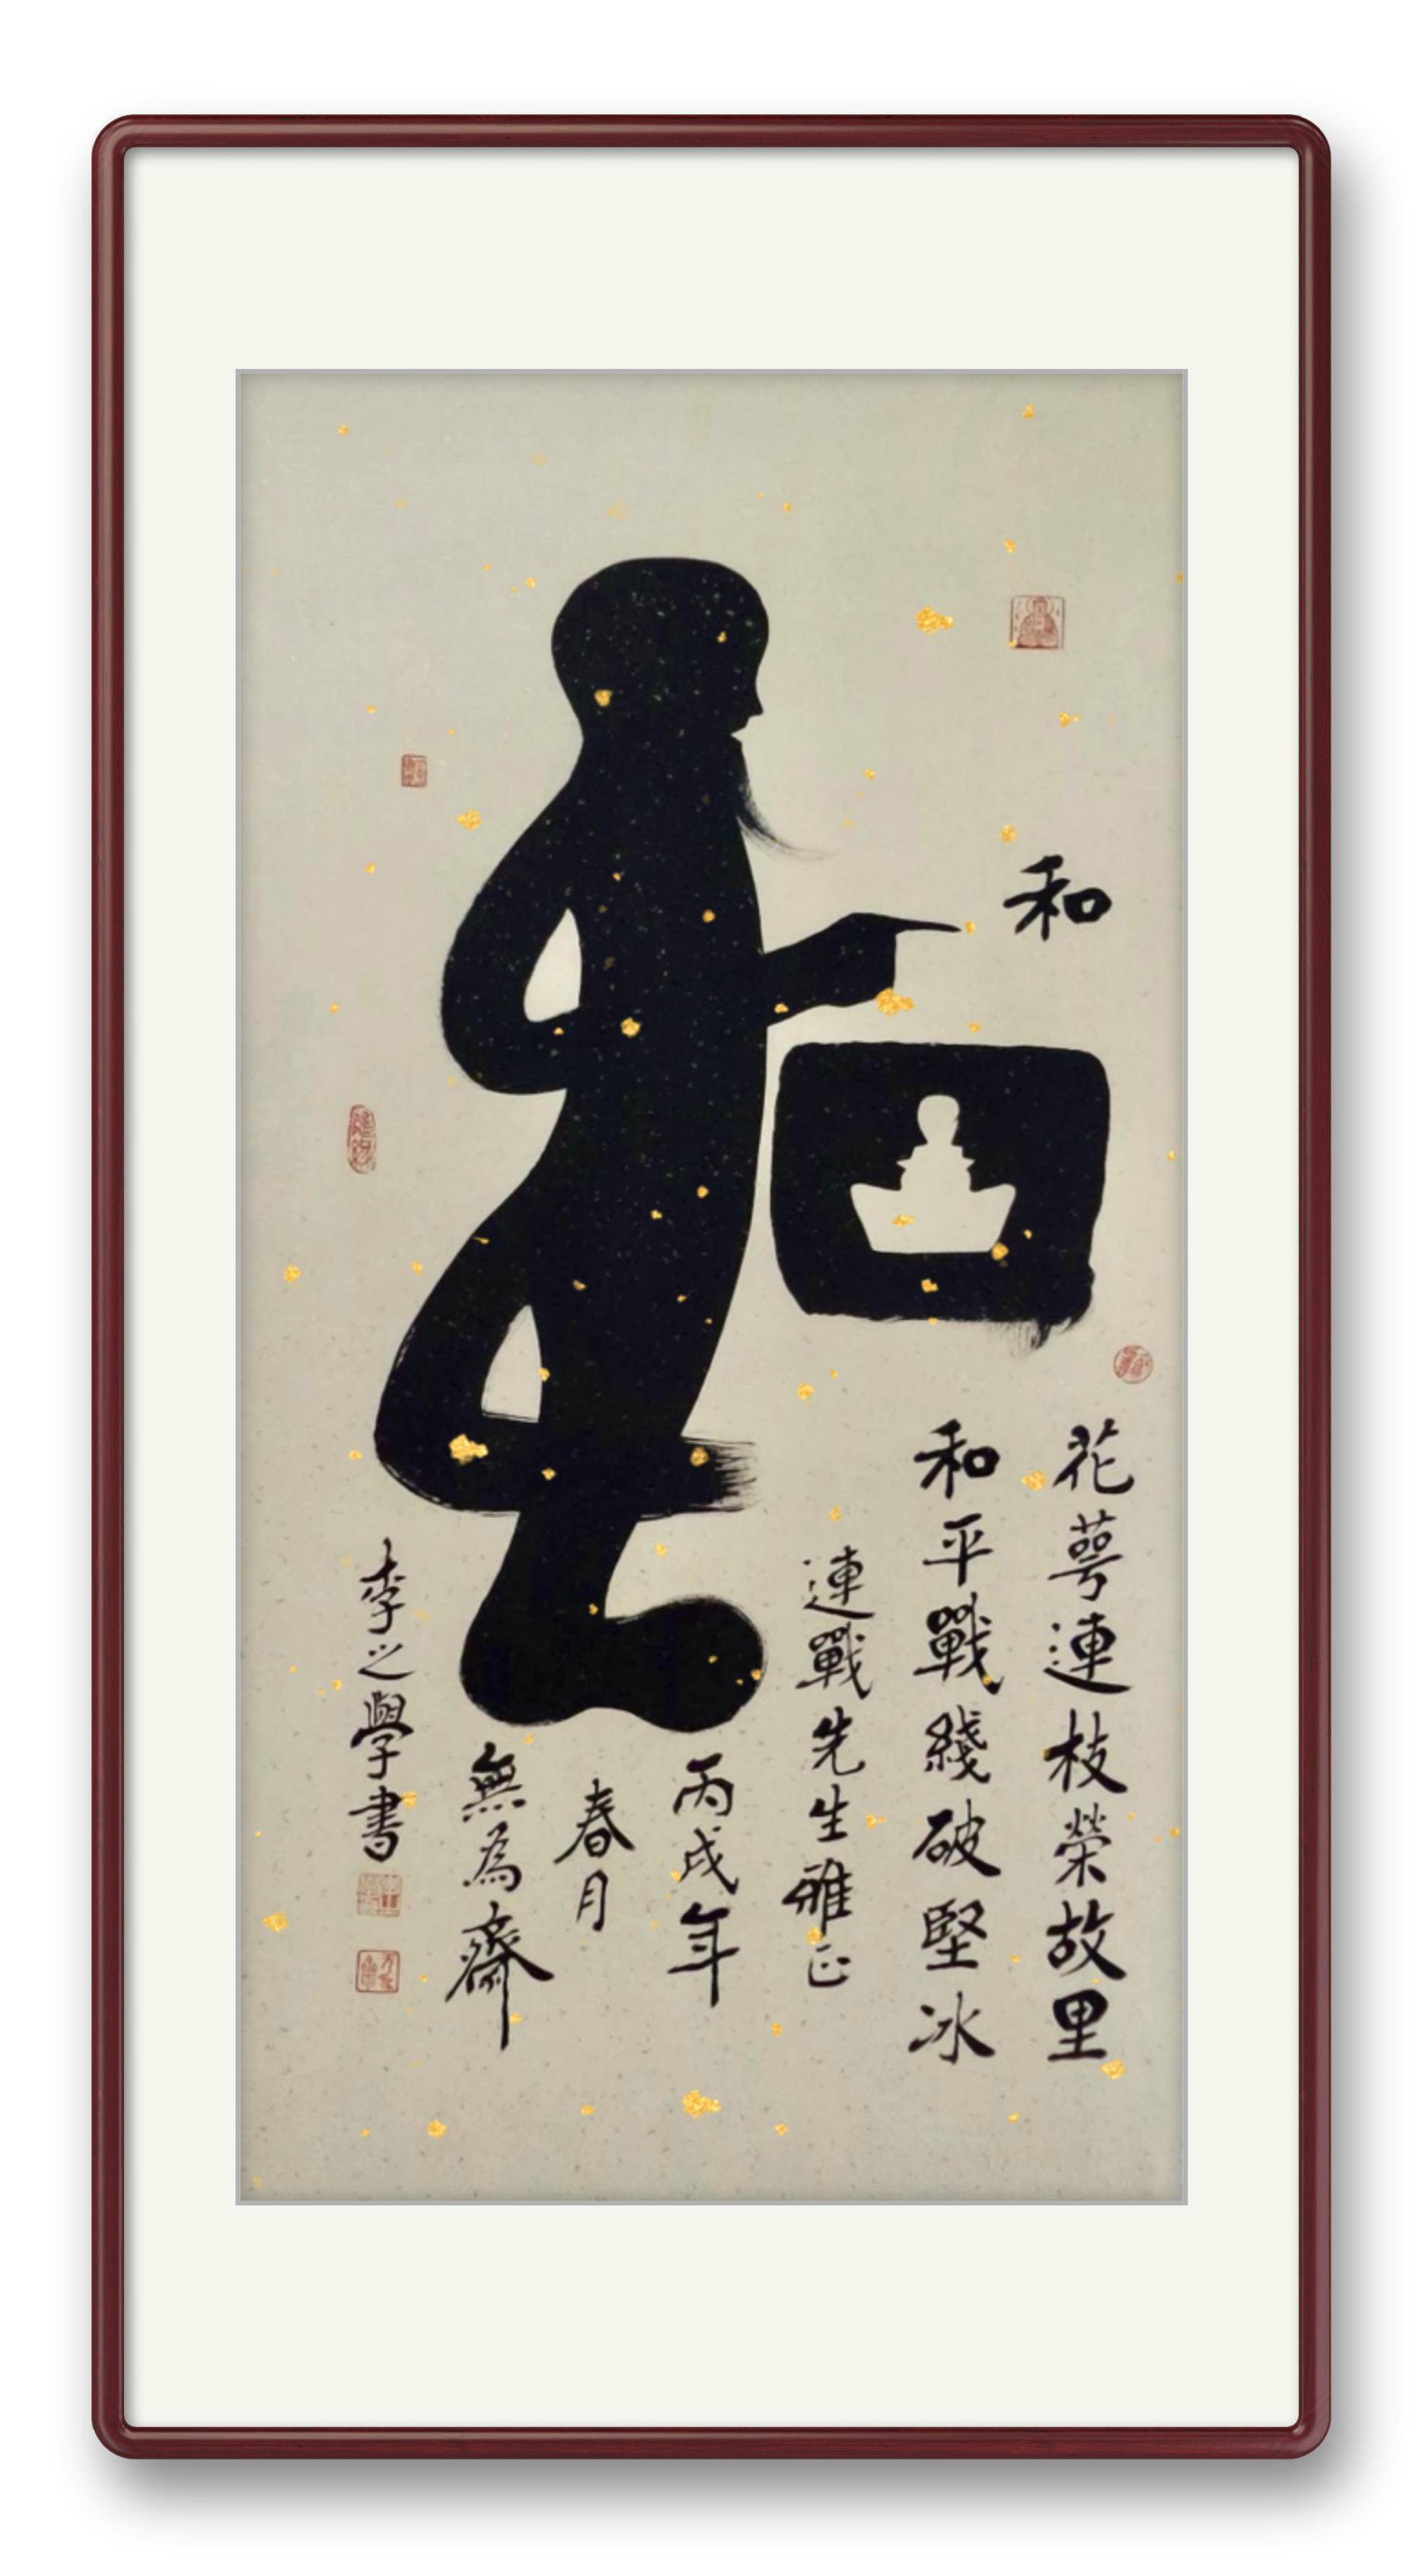 和
花萼連枝榮故里
和平戰綫破堅冰
連戰先生雅正
丙戌年
春月
無為齋
李之學書